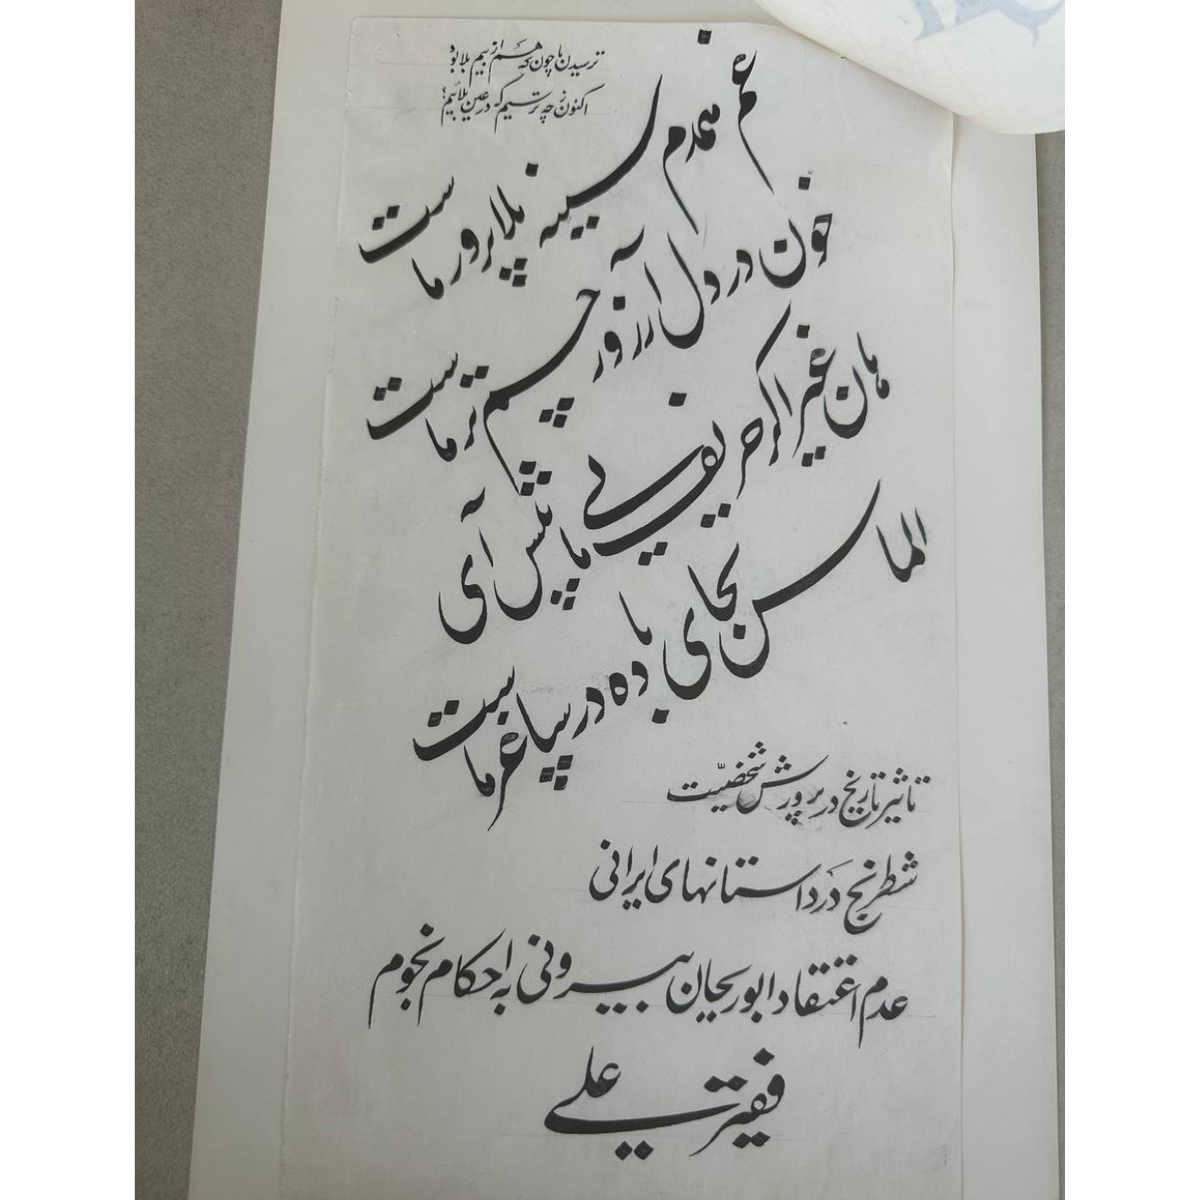 ترسیدن ما چون که هم از بیم بلا بود
اکنون ز چه ترسیم که در عین بلاییم؟
غم همدم سینه بلاپرور ماست
خون در دل آرزو ز چشم تر ماست
هان غیر اگر حریف مایی پیش آی
الماس بجای باده در ساغر ماست
تاثیر تاریخ در پرورش شخصیّت
شطرنج در داستانهای ایرانی
عدم اعتقاد ابوریحان بیرونی به احکام نجوم
فقیر علی